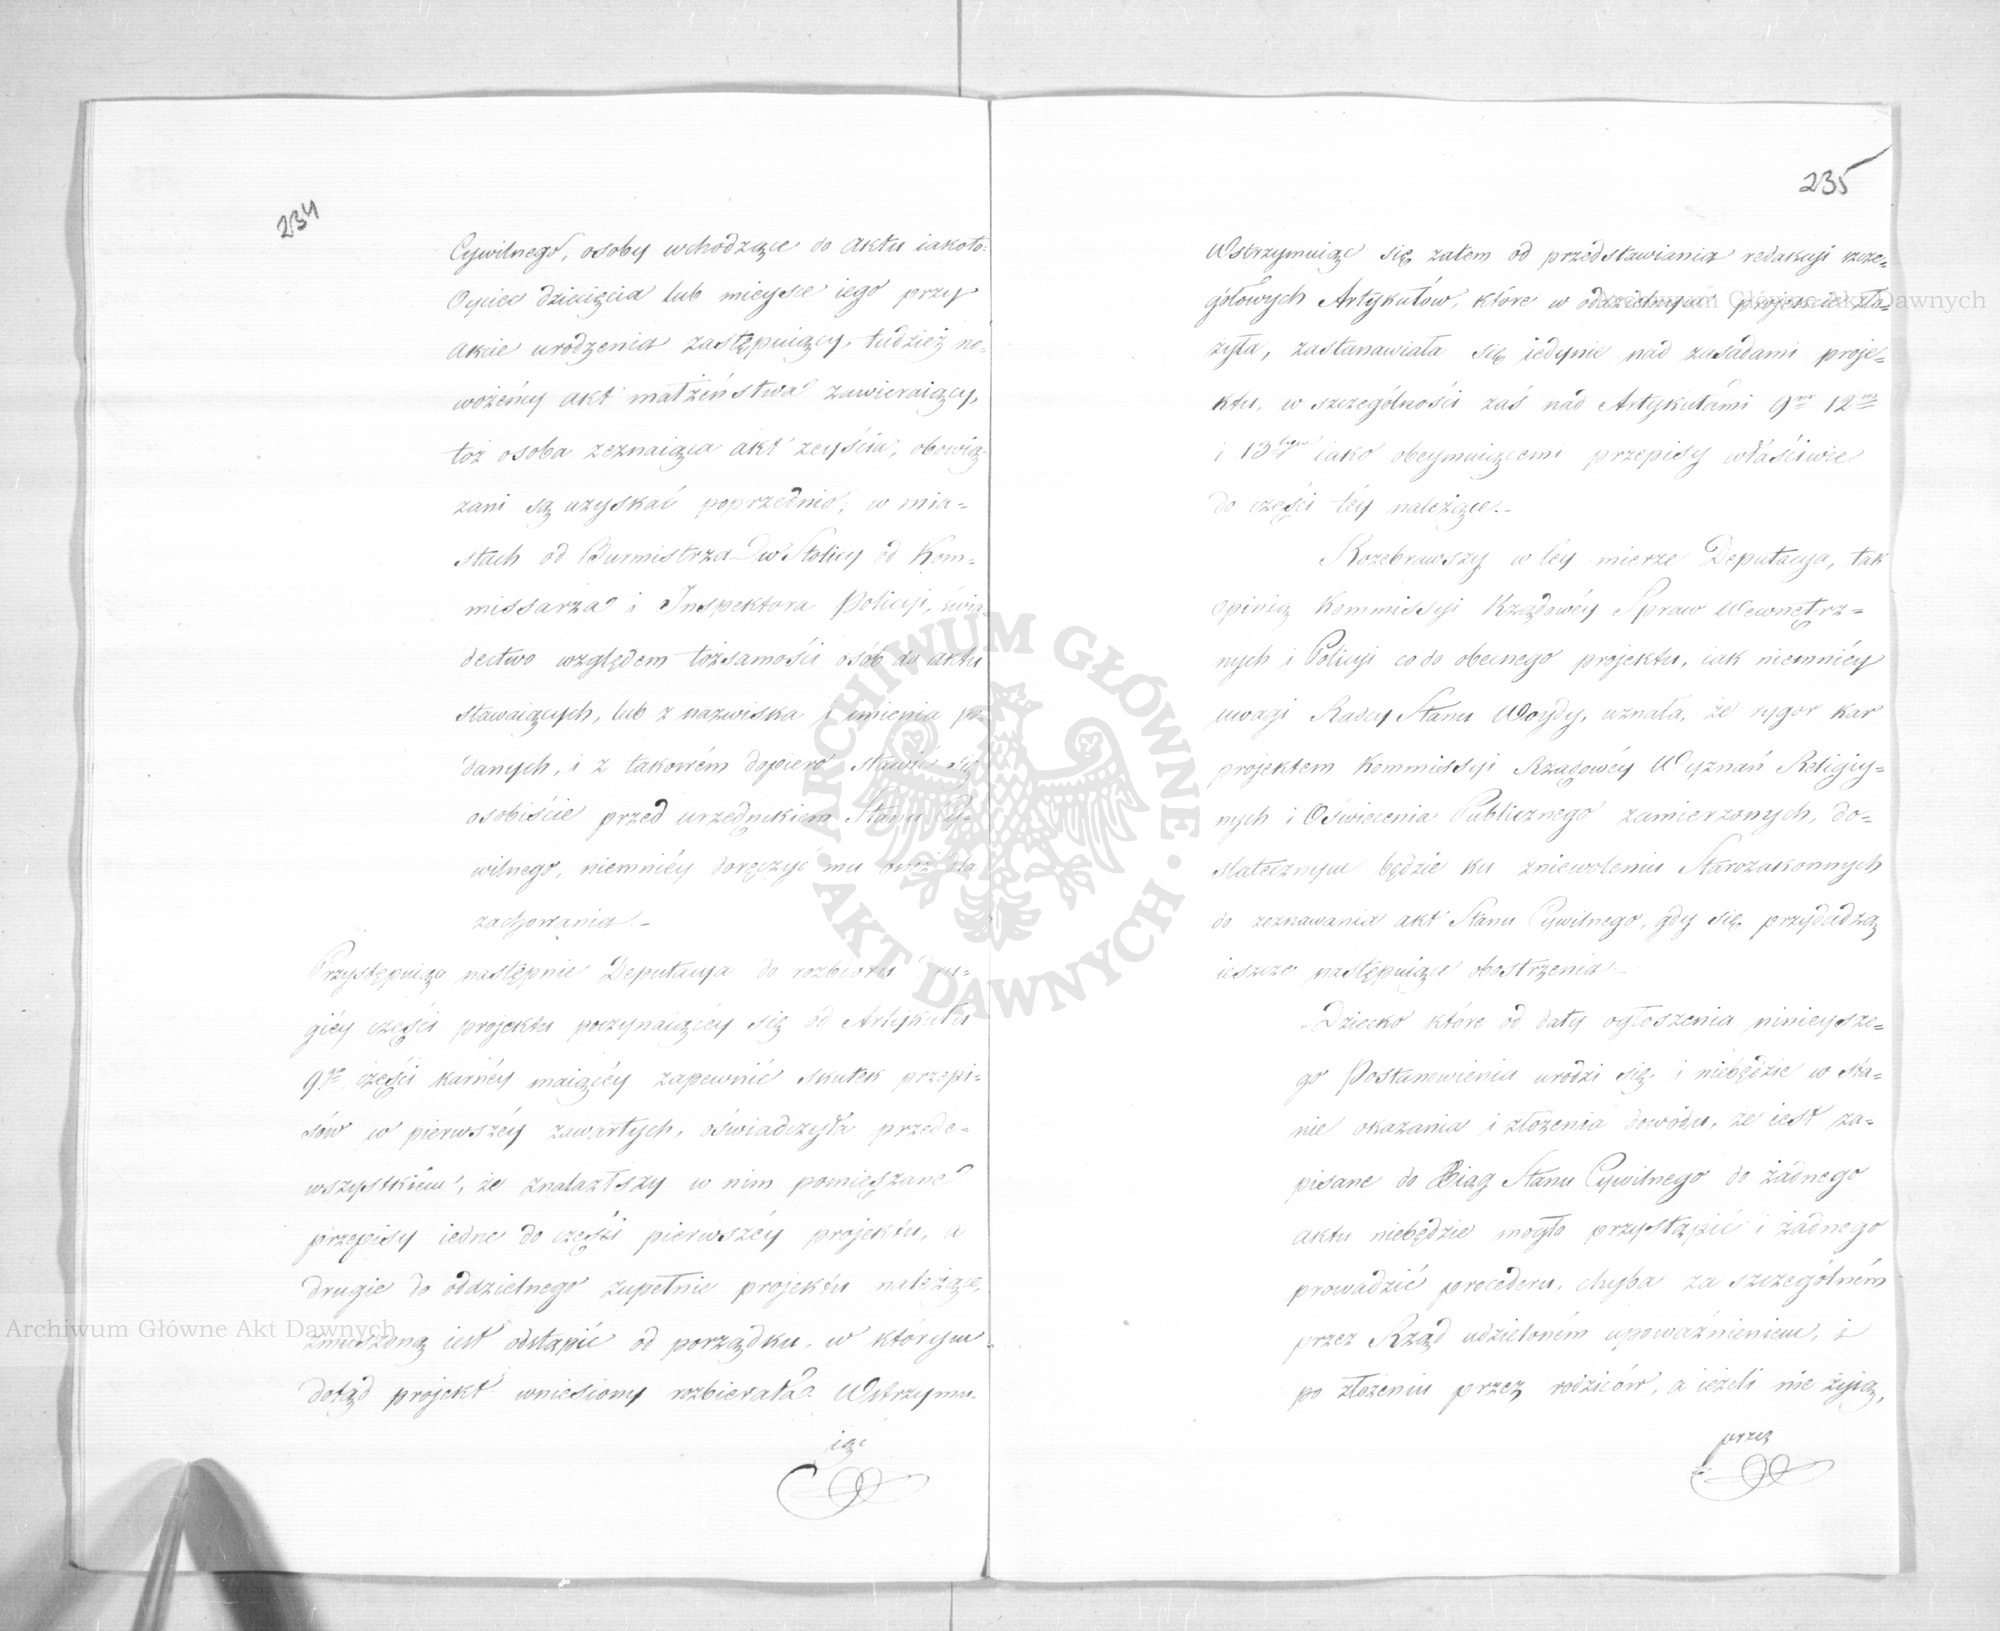 234
Cywilnego, osoby wchodzące do aktu iakoto:
Oyciec dziecięcia lub mieysce iego przy
akcie urodzenia zastępuiący, tudzież no-
wożeńcy akt małżeństwa zawieraiący,
toż osoba zeznaiąca akt zeyścia, obowią-
zani są uzyskać poprzednio, w mia-
stach od Burmistrza w Stolicy od Kom-
missarza i Inspektora Policyi, świa-
dectwo względem tożsamości osób do aktu
stawaiących, lub z nazwiska i imienia po-
danych, i z takowém dopiero stawić się
osobiście przed urzędnikiem Stanu Cy-
wilnego, niemniéy doręczyć mu one dla
zachowania.-
Przystępuiąc następnie Deputacya do rozbioru dru-
giéy części projektu poczynaiącéy się od Artykułu
9go części karnéy maiącéy zapewnić skutek przepi-
sów w pierwszéy zawartych, oświadczyła przede-
wszystkiém, że znalazłszy w nim pomięszane
przepisy iedne do części pierwszéy projektu, a
drugie do oddzielnego zupełnie projektu należące,
zmuszoną iest odstąpić od porządku, w którym
dotąd projekt wniesiony rozbierała. Wstrzymu-
iąc
235
Wstrzymuiąc się zatem od przedstawiania redakcyi szcze-
gółowych Artykułów, które w oddzielnym projekcie zło-
żyła, zastanawiała się iedynie nad zasadami proje-
ktu, w szczególności zaś nad Artykułami 9m 12m
i 13tym iako obeymuiącemi przepisy właściwie
do części téy należące.-
Rozebrawszy w téy mierze Deputacya, tak
opinią Kommissyi Rządowéy Spraw Wewnętrz-
nych i Policyi co do obecnego projektu, iak niemniéy
uwagi Radcy Stanu Woydy, uznała, że rygor kar
projektem Kommissyi Rządowéy Wyznań Religiy-
nych i Oświecenia Publicznego zamierzonych, do-
statecznym będzie ku zniewoleniu Starozakonnych
do zeznawania akt Stanu Cywilnego, gdy się przydadzą
ieszcze następuiące obostrzenia.-
Dziecko które od daty ogłoszenia ninieysze-
go Postanowienia urodzi się, i niebędzie w sta-
nie okazania i złożenia dowodu, że iest za-
pisane do Xiąg Stanu Cywilnego do żadnego
aktu niebędzie mogło przystąpić i żadnego
prowadzić procederu, chyba za szczególném
przez Rząd udzieloném upoważnieniem, i
po złożeniu przez rodziców, a ieżeli nie żyią,
przez
ARCHIWUM GŁÓWNE AKT DAWNYCH
Archiwum Główne Akt Dawnych
Archiwum Główne Akt Dawnych